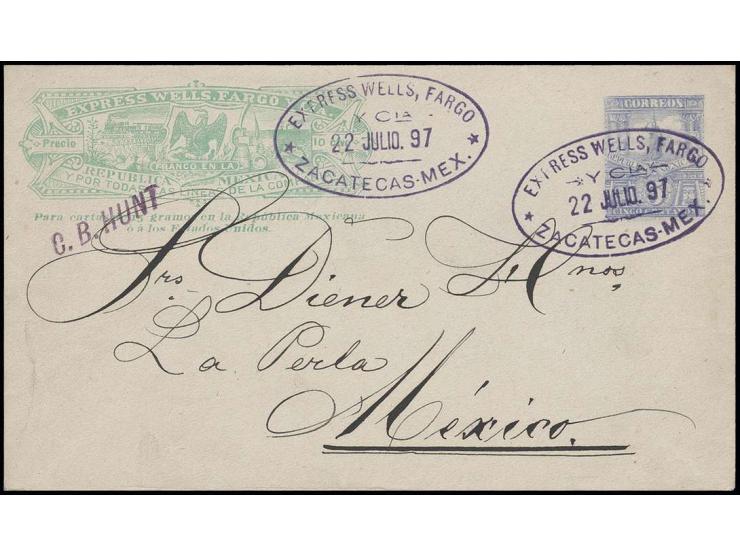 EXPRESS WELLS, FARGO
Precio
10
FRANCO EN LA
REPUBLICA MEXICANA
Y POR TODAS LAS LINEAS DE LA CO
Para cartas gramos en la República Mexicana
o á los Estados Unidos.
C. B. HUNT
EXPRESS WELLS, FARGO
Y CIA
22 JULIO. 97
ZACATECAS-MEX.
CORREOS
CINCO
EXPRESS WELLS, FARGO
Y CIA
22 JULIO. 97
ZACATECAS-MEX.
Srs. Diener Hnos
La Perla
México.